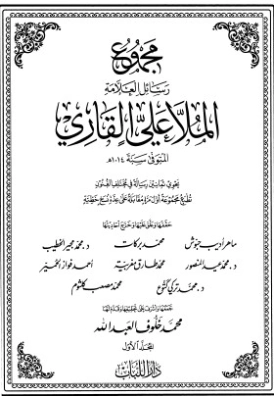 مجموع
رسائل العلامة
الملا علي القاري
المتوفى سنة ١٠١٤ه
يحوي ثمانين رسالة في مختلف الفنون
تطبع مجموعة أول مرة مقابلة على عدة نسخ خطية
حققها وعلق عليها وخرج أحاديثها
ماهر أديب حبوش محمد بركات د. محمد مجير الخطيب
د. محمد عيد المنصور محمد طارق مغربية أحمد فواز الحمير
د. محمد تركي كتوع محمد مصعب كلثوم
محمد خلوف العبد الله
المجلد الأول
دار اللباب